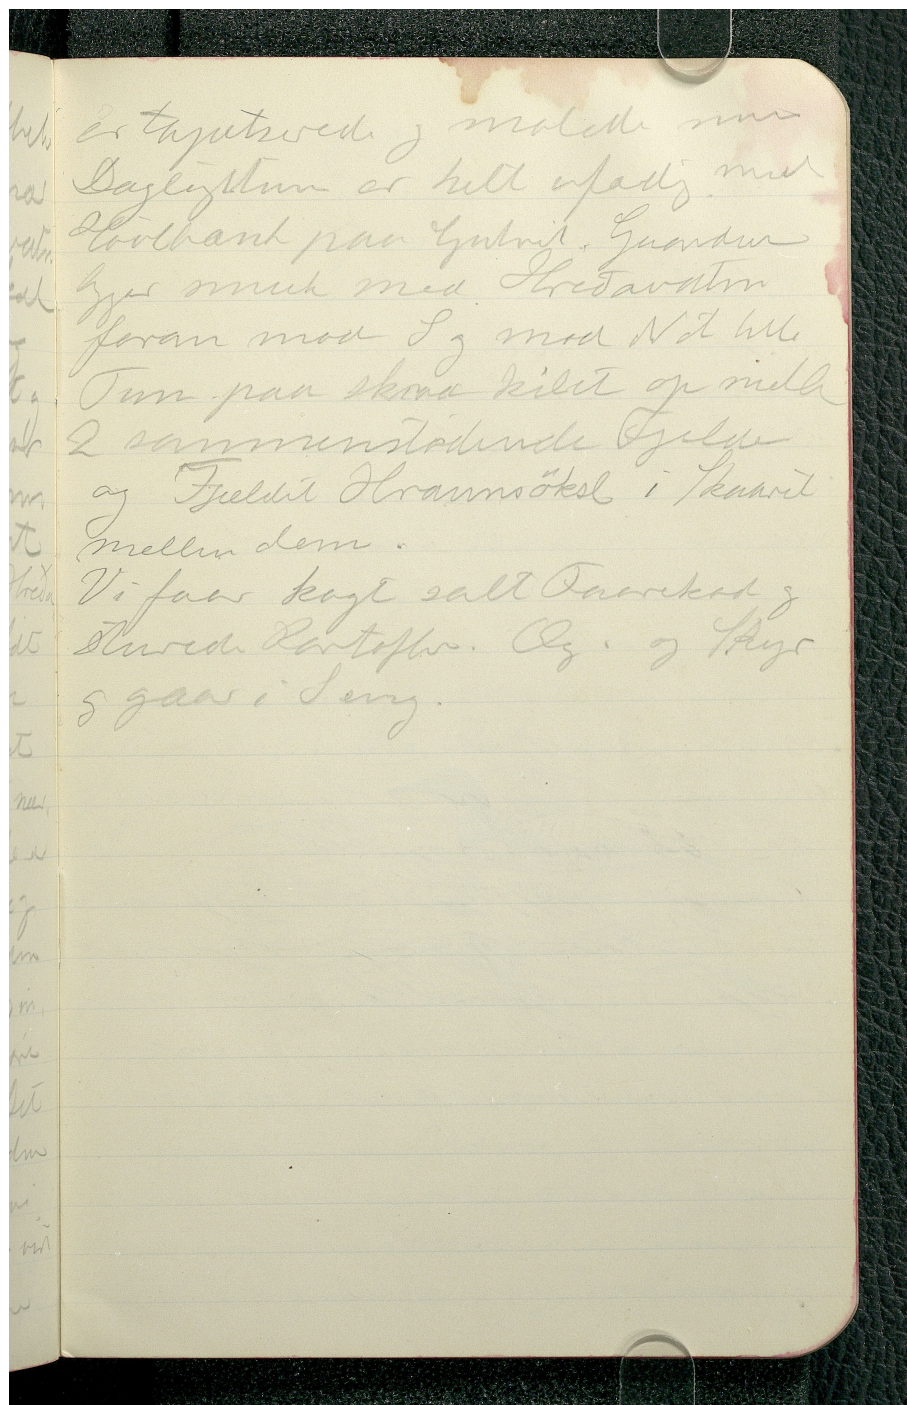 er tapetserede og malede men
Dagligstuen er helt ufædig med
Høvlbænk paa Gulvet. Gaarden
ligger smukt med Hreðavatn
foran mod S og mod N et lille
Tun paa skraa kilet op mellem
2 sammenstødende Fjelde
og Fjeldet Hraunsöksl i Skaaret
mellem dem.
Vi faar kogt salt Faarekød og
stuvede Kartofler. Æg. og Skyr
og gaar i Seng.